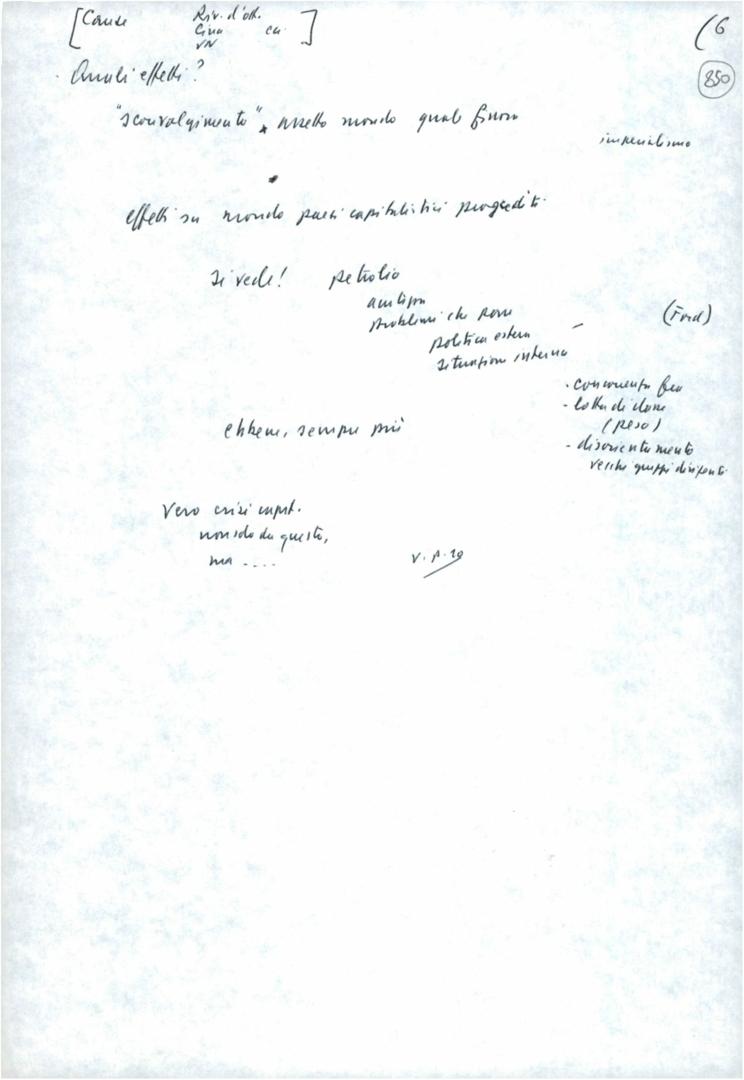 [Cause Riv. d'ott. (6
Cina ecc. ]
VN
850
. Quali effetti?
"sconvolgimento" assetto mondo quale finora
imperialismo
effetti su mondo paesi capitalistici progrediti
si vede! petrolio
problemi che pone (Ford)
politica estera –
situazione interna
. concorrenza fra
- lotta di classe
ebbene, sempre più (peso)
- disorientamento
vecchi gruppi dirigenti
Vero crisi capit.
non solo da questo,
ma .... v. p. 10